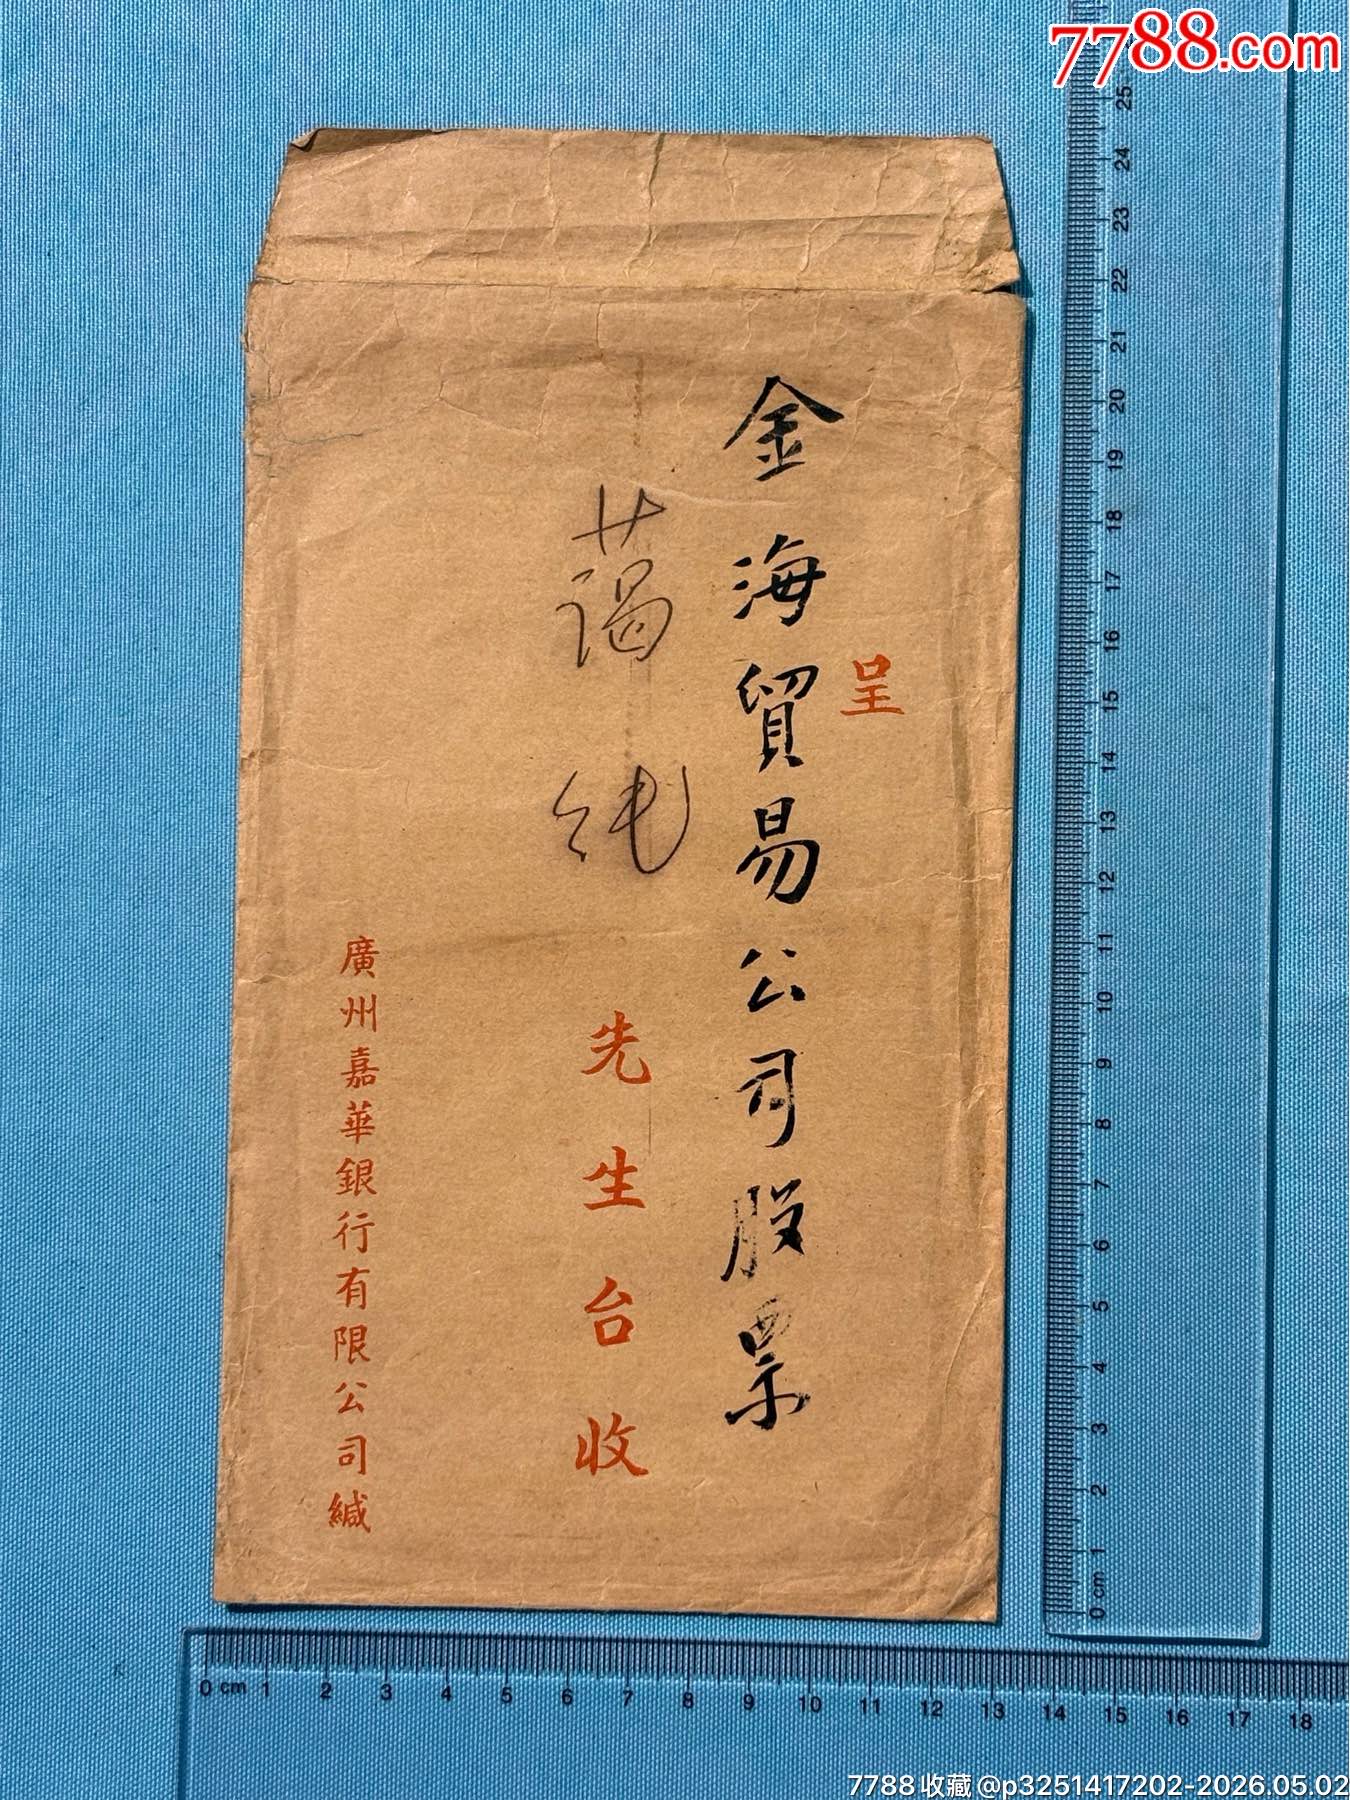 7788.com
呈
金海貿易公司股票
先生台收
廣州嘉華銀行有限公司緘
25
24
23
22
21
20
19
18
17
16
15
14
13
12
11
10
9
8
7
6
5
4
3
2
1
0 cm
0 cm 1 2 3 4 5 6 7 8 9 10 11 12 13 14 15 16 17 18
7788收藏@p3251417202-2026.05.02